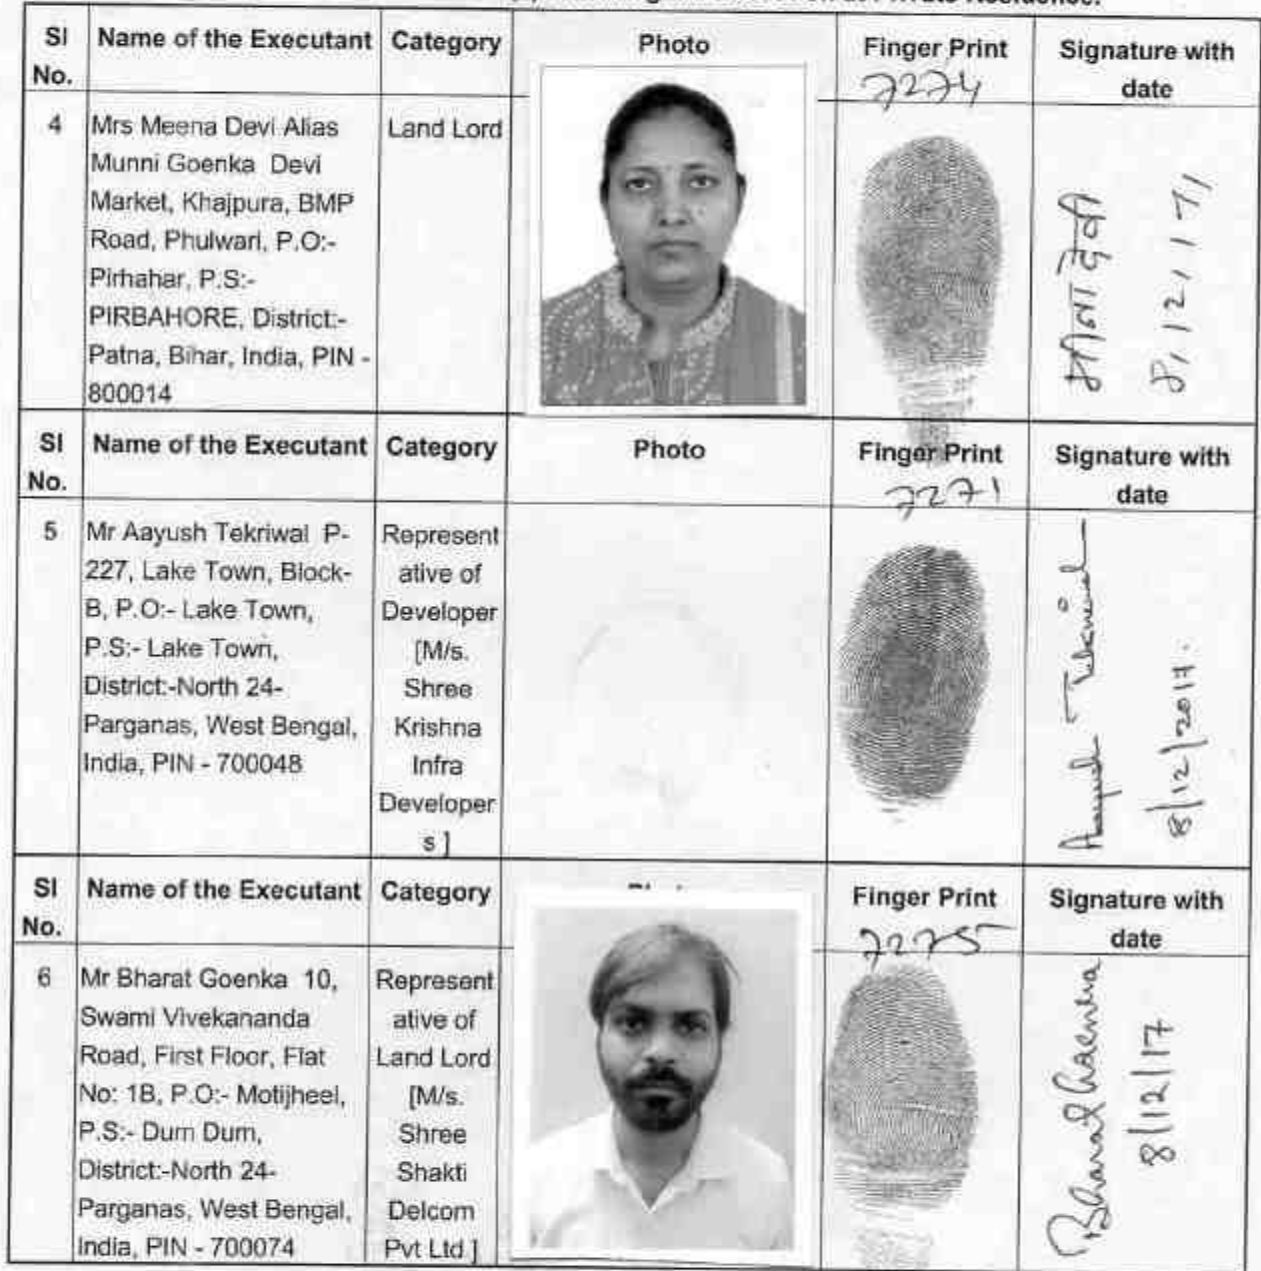 at Private Residence.
Sl No.
Name of the Executant
Category
Photo
Finger Print
Signature with date
7274
4
Mrs Meena Devi Alias
Munni Goenka Devi
Market, Khajpura, BMP
Road, Phulwari, P.O:-
Pirhahar, P.S:-
PIRBAHORE, District:-
Patna, Bihar, India, PIN -
800014
Land Lord
मीना देवी
8/12/17
Sl No.
Name of the Executant
Category
Photo
Finger Print
Signature with date
7271
5
Mr Aayush Tekriwal P-
227, Lake Town, Block-
B, P.O:- Lake Town,
P.S:- Lake Town,
District:-North 24-
Parganas, West Bengal,
India, PIN - 700048
Represent
ative of
Developer
[M/s.
Shree
Krishna
Infra
Developer
s ]
Aayush Tekriwal
8/12/2017.
Sl No.
Name of the Executant
Category
Finger Print
Signature with date
7275
6
Mr Bharat Goenka 10,
Swami Vivekananda
Road, First Floor, Flat
No: 1B, P.O:- Motijheel,
P.S:- Dum Dum,
District:-North 24-
Parganas, West Bengal,
India, PIN - 700074
Represent
ative of
Land Lord
[M/s.
Shree
Shakti
Delcom
Pvt Ltd ]
Bharat Goenka
8/12/17